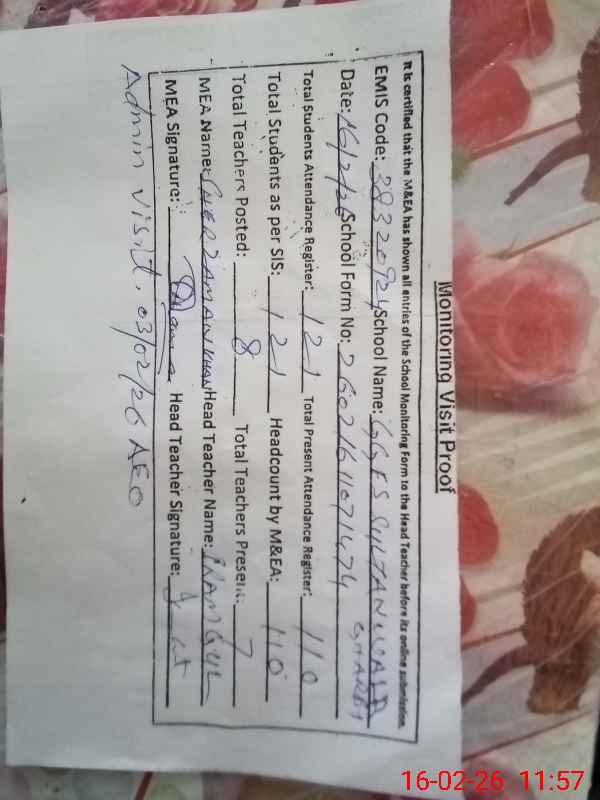 Monitoring Visit Proof
It is certified that the M&EA has shown all entries of the School Monitoring Form to the Head Teacher before its online submission.
EMIS Code: 38320924 School Name: GGES SULTAN WALA GHARBI
Date: 16/2/26 School Form No: 26021611071474
Total Students Attendance Register: 121 Total Present Attendance Register: 110
Total Students as per SIS: 121 Headcount by M&EA: 110
Total Teachers Posted: 8 Total Teachers Present: 7
MEA Name: SHERZAMAN KHAN Head Teacher Name: INAM GUL
MEA Signature: Head Teacher Signature:
Admin visit, 03/02/26 AEO
16-02-26 11:57